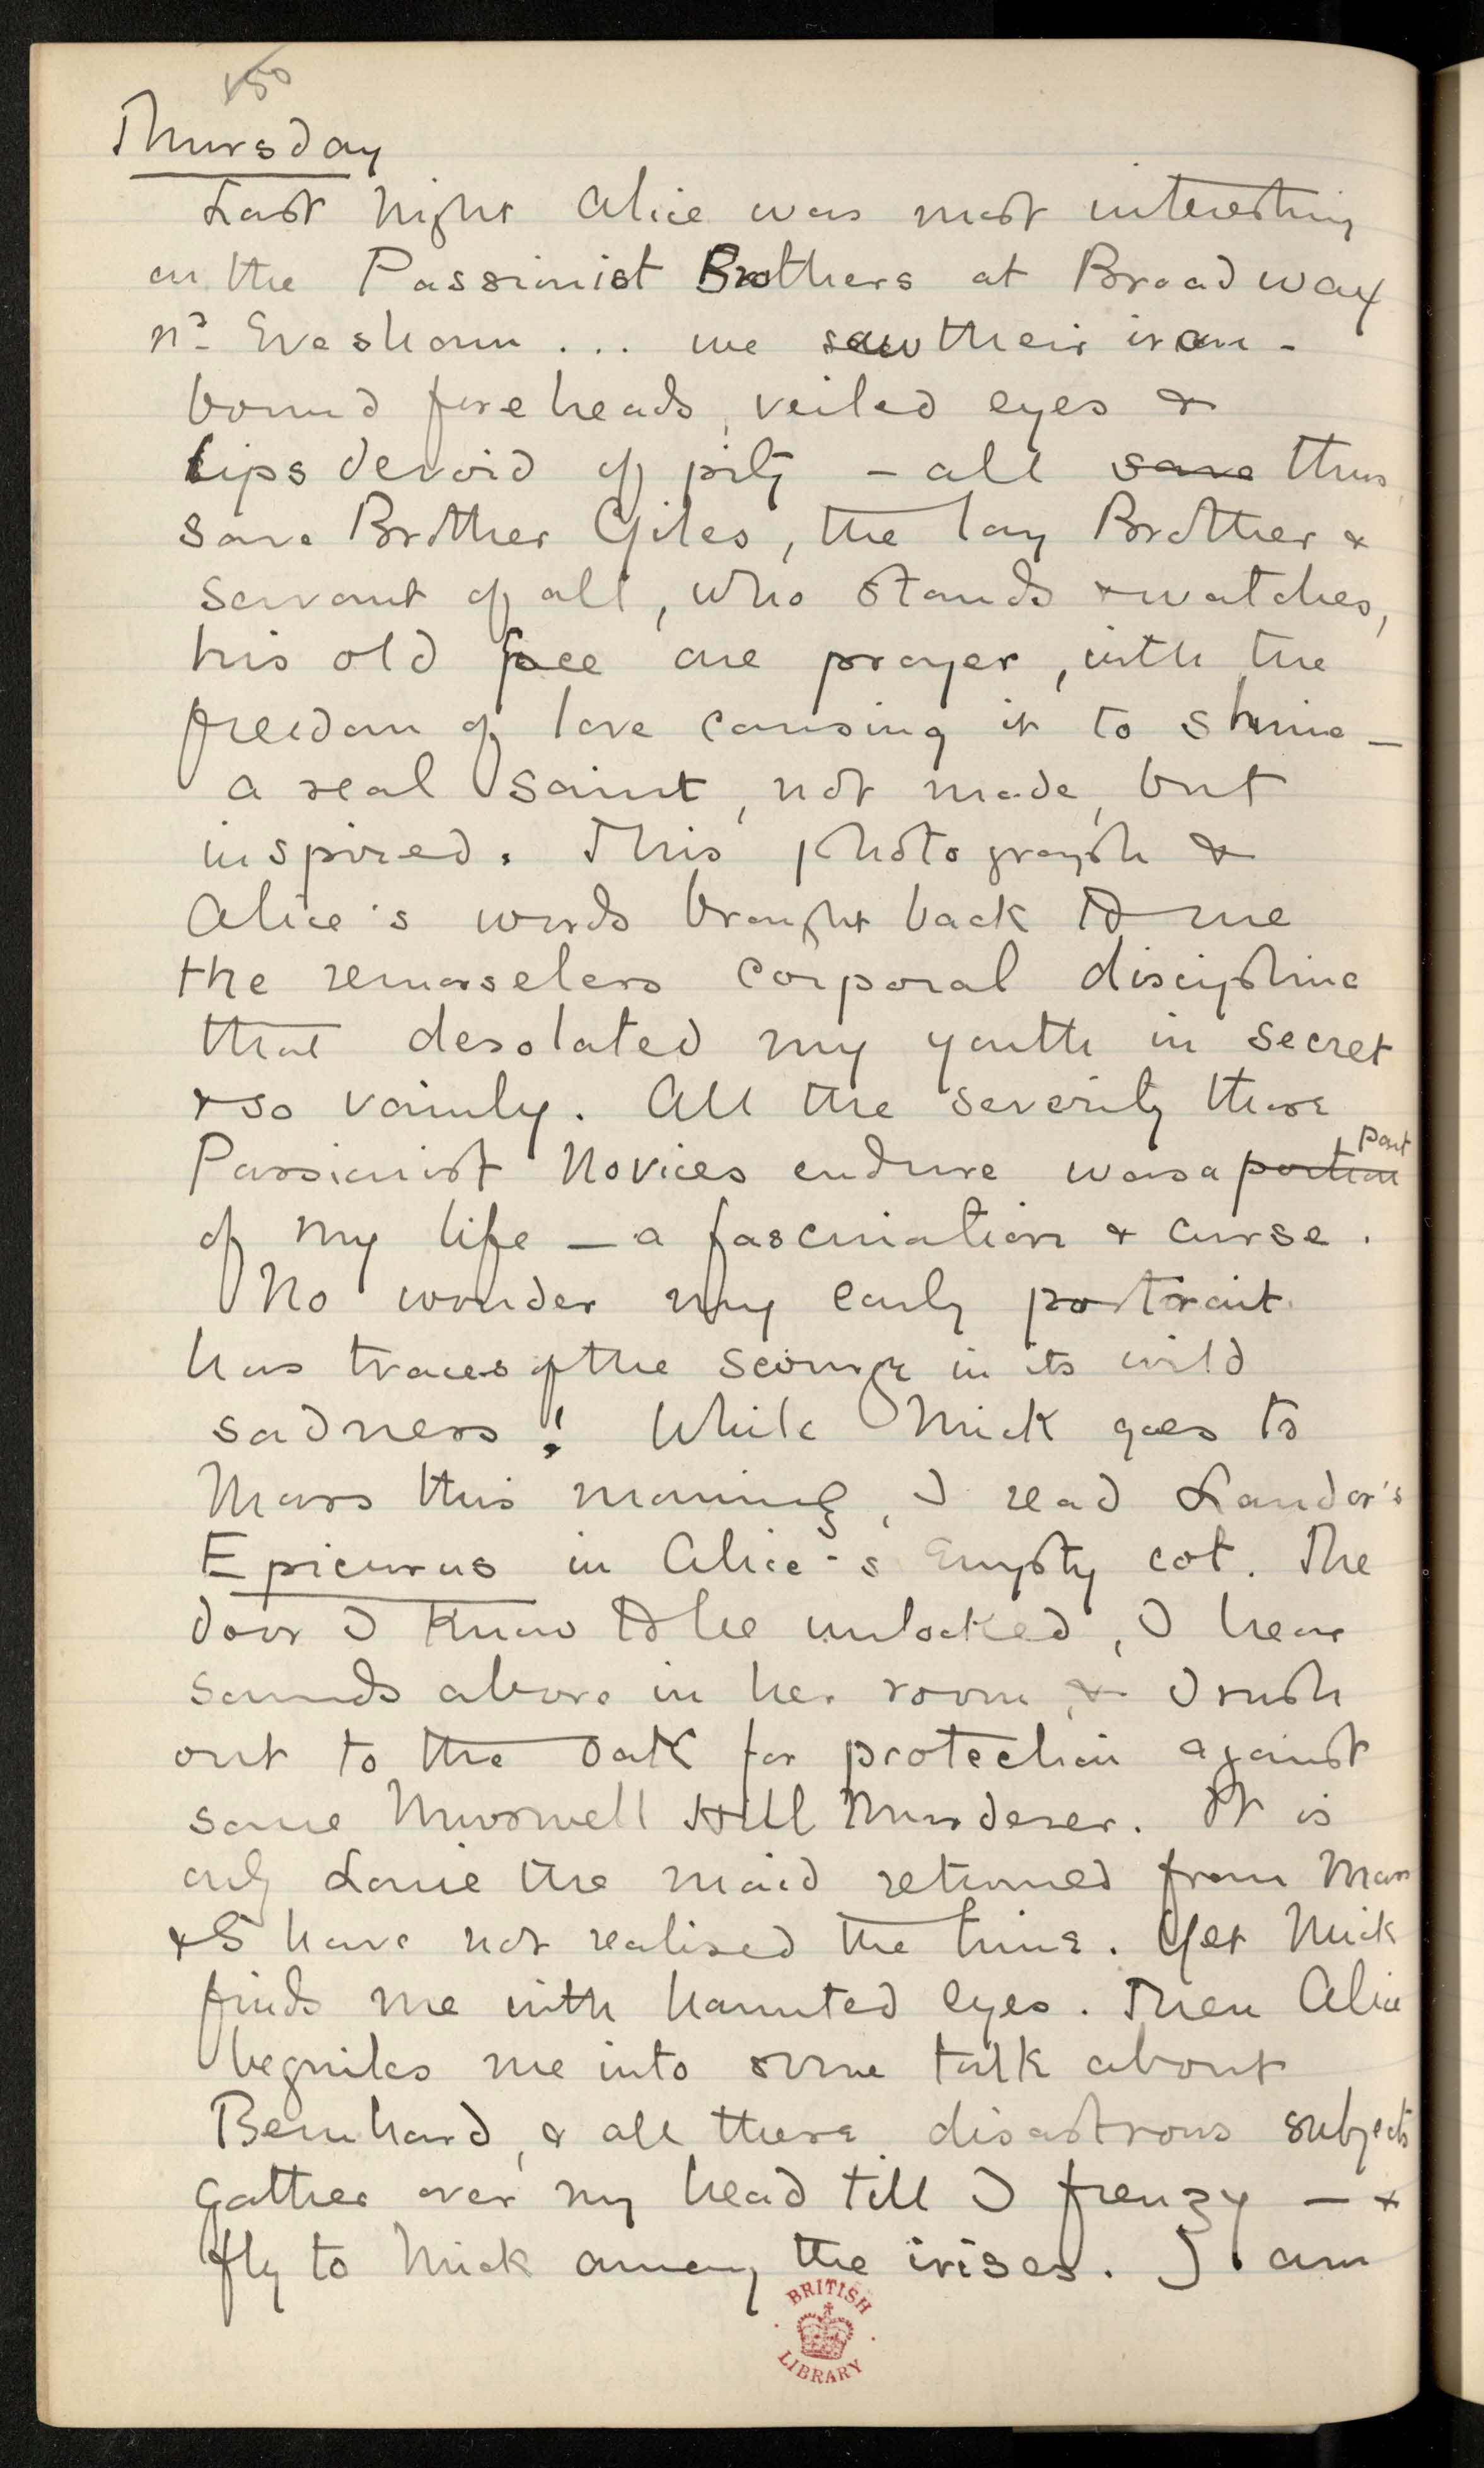 150
Thursday
Last night Alice was most interesting
on the Passionist Brothers at Broadway
nr Evesham ... we saw their iron-
bound foreheads, veiled eyes &
lips devoid of pity – all save thus,
save Brother Giles, the lay Brother &
servant of all, who stands & watches,
his old face one prayer, with the
freedom of love causing it to shine –
a real saint, not made, but
inspired. This photograph &
Alice's words brought back to me
the remorseless corporal discipline
that desolated my youth in secret
& so vainly. All the severity these
Passionist Novices endure was a portion part
of my life – a fascination & curse.
No wonder my early portrait
has traces of the scourge in its wild
sadness! While Mick goes to
Mass this morning, I read Landor's
Epicurus in Alice's empty cot. The
door I know to be unlocked, I hear
sounds above in her room & I rush
out to the oak for protection against
some Muswell Hill Murderer. It is
only Louie the maid returned from Mass
& I have not realised the time. Yet Mick
finds me with haunted eyes. Then Alice
beguiles me into some talk about
Bernhard, & all these disastrous subjects
gather over my head till I frenzy – &
fly to Mick among the irises. I am
BRITISH
LIBRARY